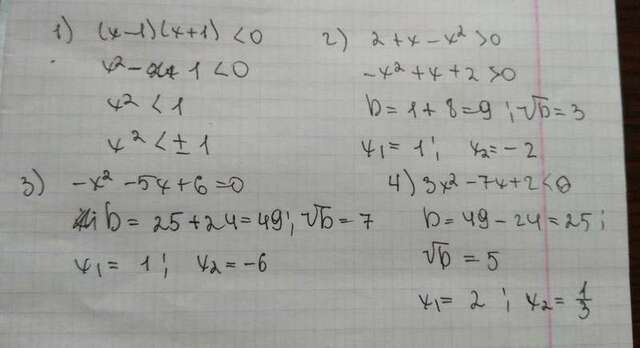 1) (x-1)(x+1) <0
x² - 1 <0
x² < 1
x² < ± 1
2) 2+x-x² >0
-x²+x+2 >0
D = 1+8 = 9 ; √D = 3
x₁ = 1 ; x₂ = -2
3) -x² -5x+6=0
D = 25+24=49 ; √D = 7
x₁ = 1 ; x₂ = -6
4) 3x² -7x+2<0
D = 49 - 24 = 25 ;
√D = 5
x₁ = 2 ; x₂ = 1/3